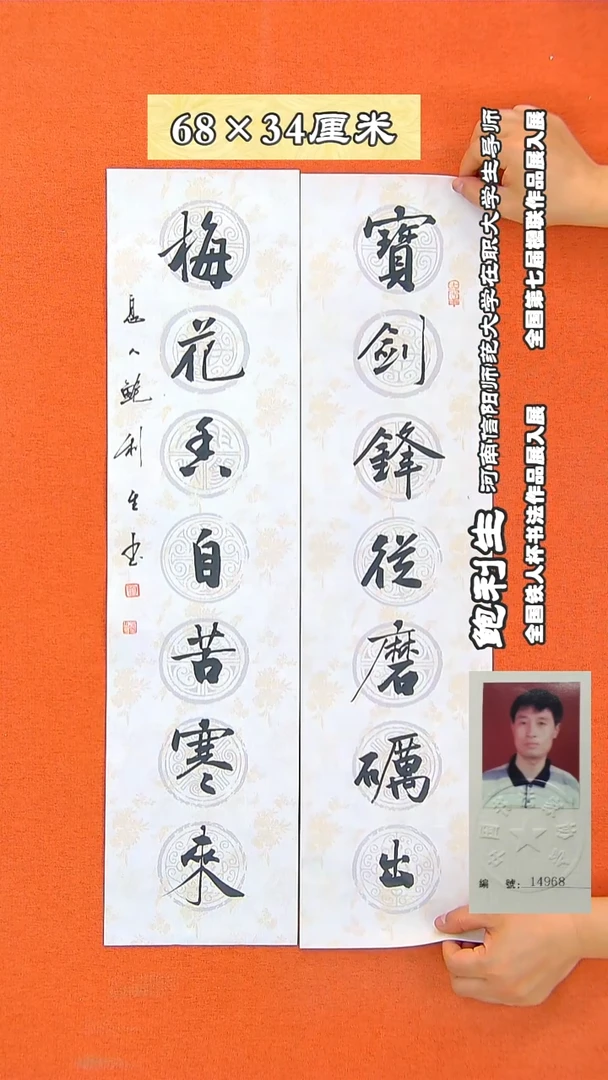 68×34厘米
寶劍鋒從磨礪出
梅花香自苦寒來
息人鲍利生书
鲍利生 河南信阳师范大学在职大学生导师
全国第七届楹联作品展入展
全国铁人杯书法作品展入展
編 號: 14968